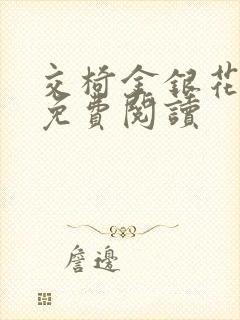 交椅金銀花
免費閱讀
詹邊